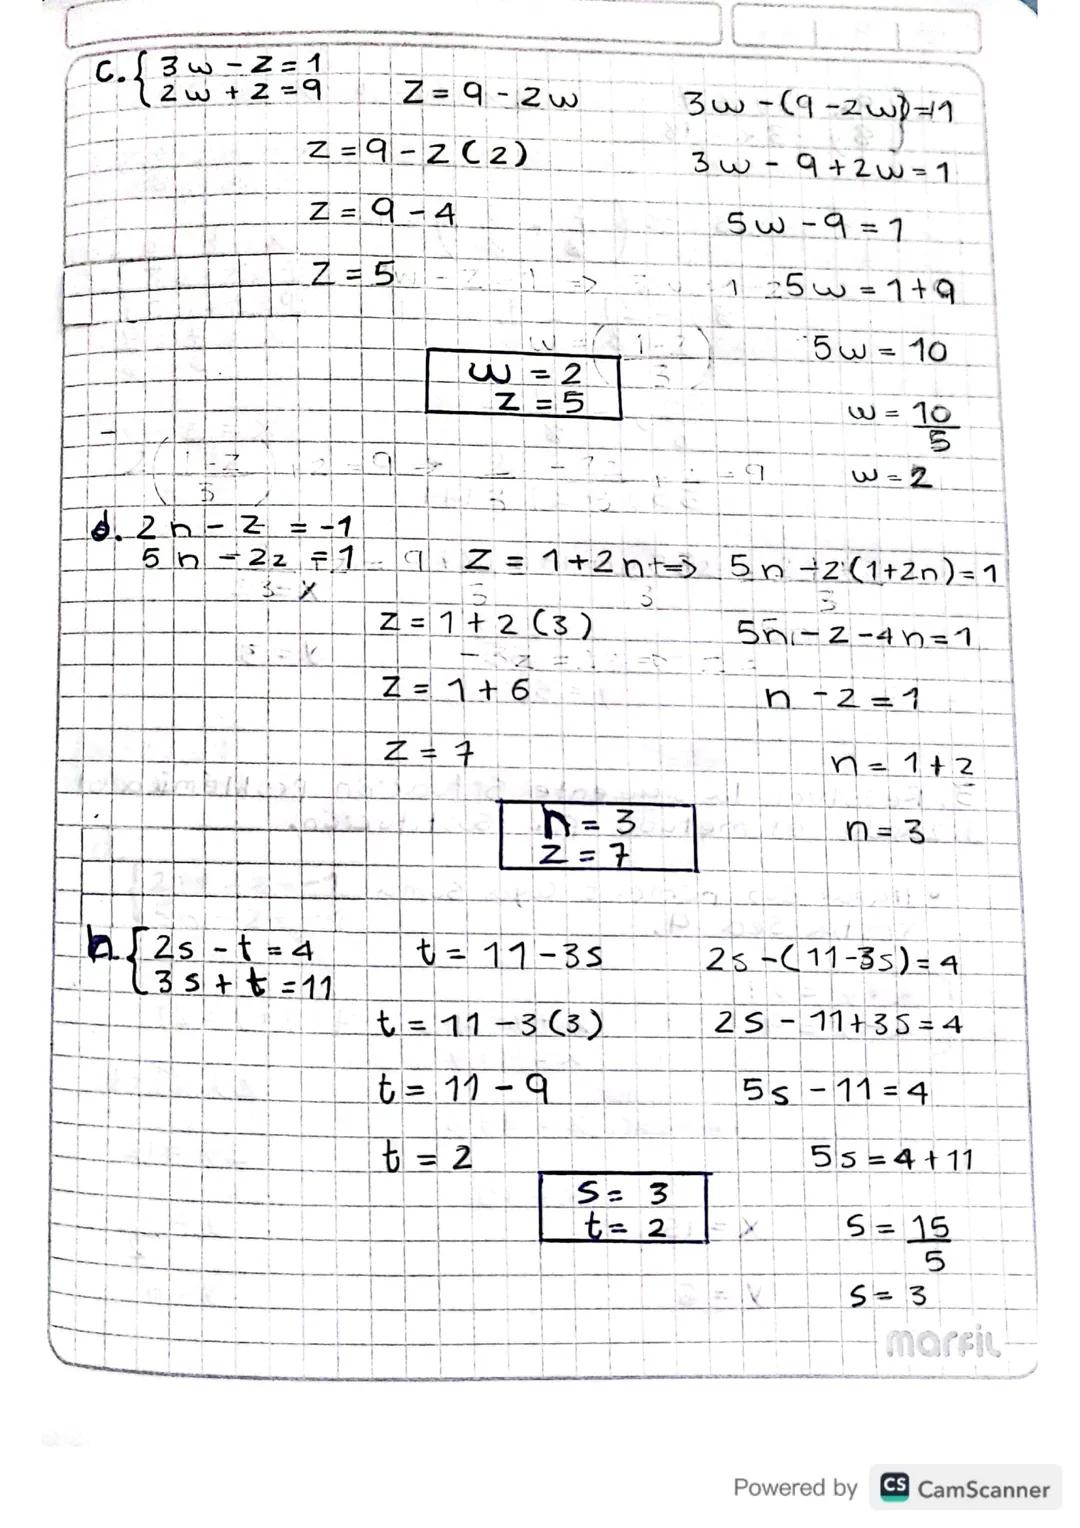 c. { 3w - z = 1
2w + z = 9
z = 9 - 2w
3w - (9 - 2w) = 1
z = 9 - 2(2)
3w - 9 + 2w = 1
z = 9 - 4
5w - 9 = 1
z = 5
5w = 1 + 9
5w = 10
w = 2
z = 5
w = 10/5
w = 2
d. 2n - z = -1
5n - 2z = 1
z = 1 + 2n ⇒ 5n - 2(1 + 2n) = 1
z = 1 + 2(3)
5n - 2 - 4n = 1
z = 1 + 6
n - 2 = 1
z = 7
n = 1 + 2
n = 3
z = 7
n = 3
h. { 2s - t = 4
3s + t = 11
t = 11 - 3s
2s - (11 - 3s) = 4
t = 11 - 3(3)
2s - 11 + 3s = 4
t = 11 - 9
5s - 11 = 4
t = 2
5s = 4 + 11
s = 3
t = 2
s = 15/5
s = 3
marfil
Powered by CS CamScanner